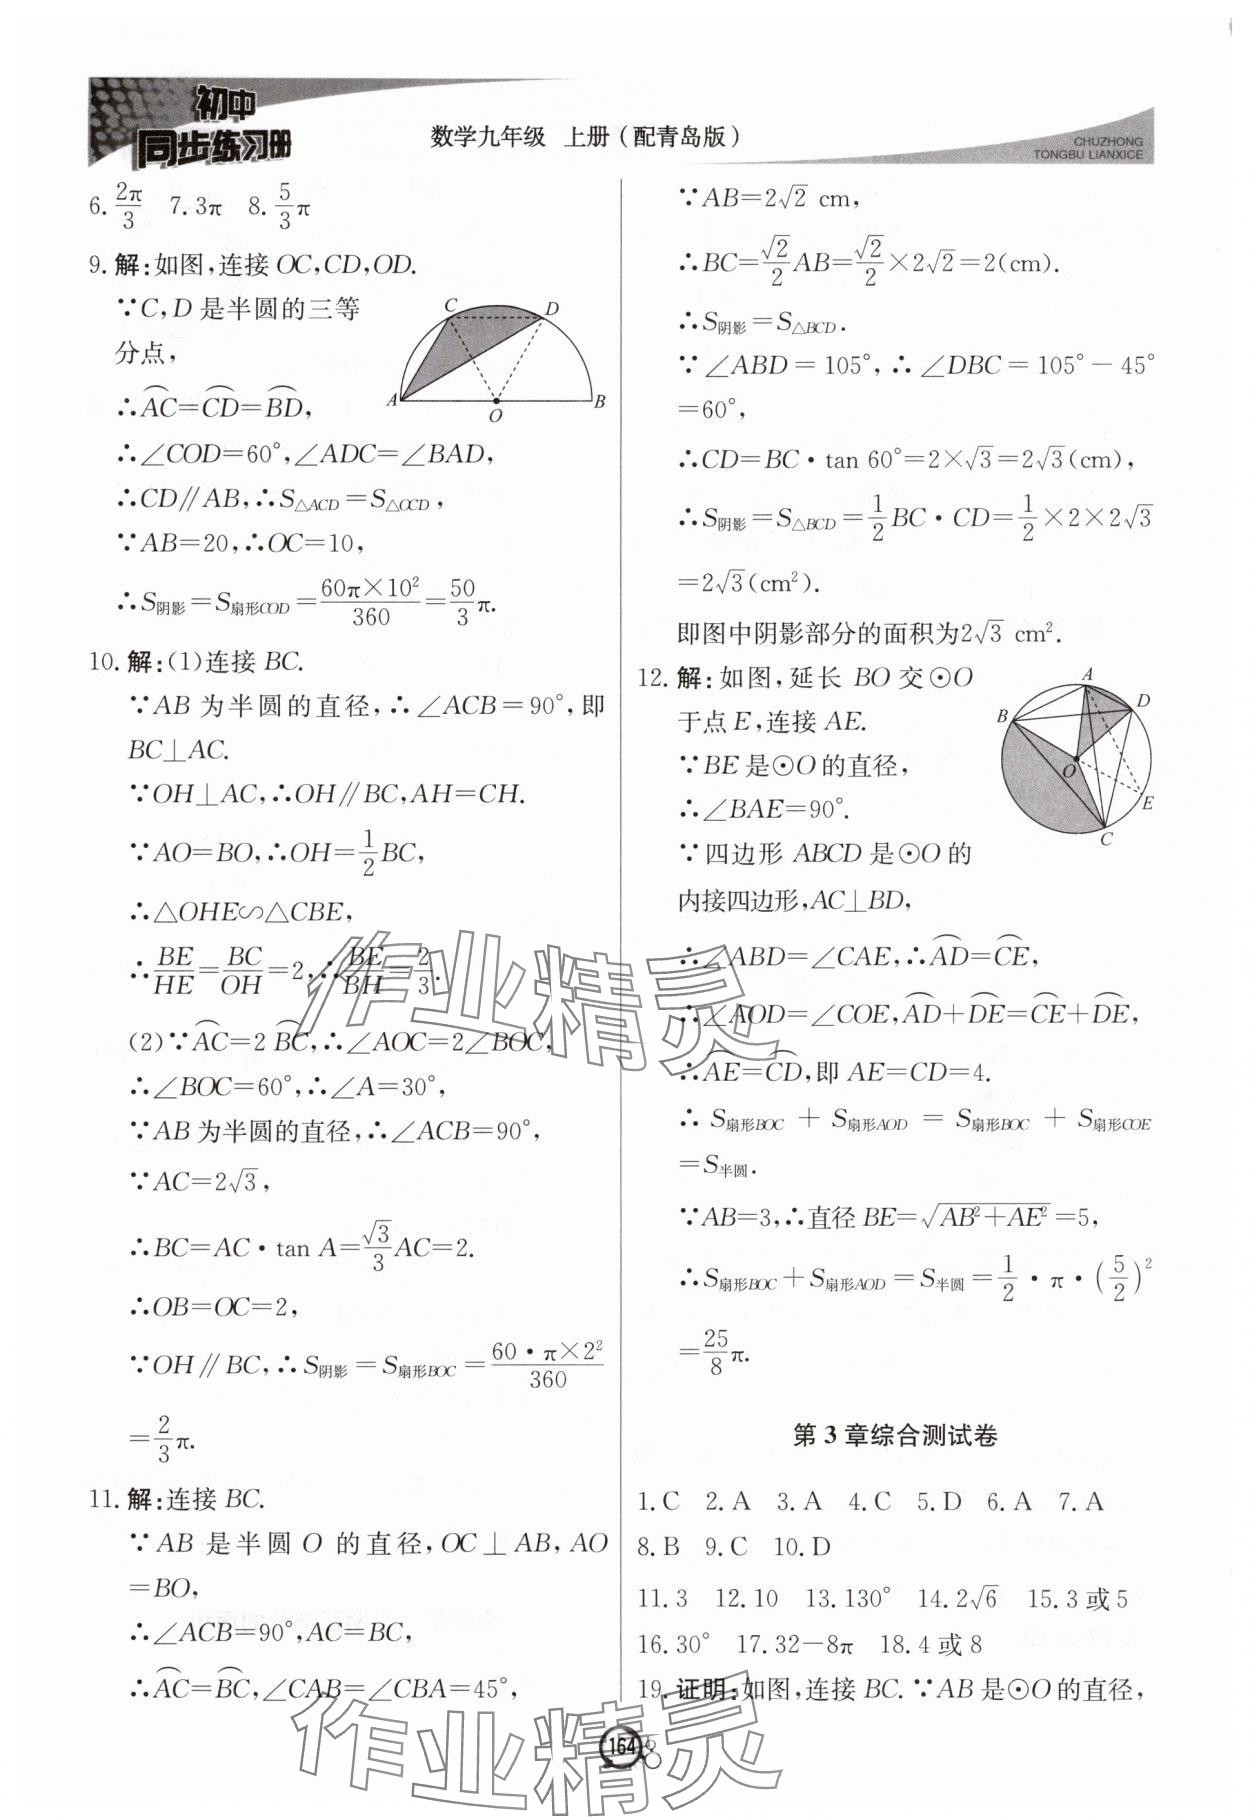 初中
同步练习册
数学九年级 上册（配青岛版）
CHUZHONG
TONGBU LIANXICE
6. 2π/3 7.3π 8. 5/3 π
9. 解:如图,连接 OC,CD,OD.
∵C,D 是半圆的三等
分点,
∴⌒AC=⌒CD=⌒BD,
∴∠COD=60°,∠ADC=∠BAD,
∴CD∥AB,∴S△ACD=S△OCD,
∵AB=20,∴OC=10,
∴S阴影=S扇形COD=60π×10²/360=50/3 π.
C D A O B
10. 解:(1)连接 BC.
∵AB 为半圆的直径,∴∠ACB=90°,即
BC⊥AC.
∵OH⊥AC,∴OH∥BC,AH=CH.
∵AO=BO,∴OH=1/2 BC,
∴△OHE∽△CBE,
∴BE/HE=BC/OH=2,∴BE/BH=2/3.
(2)∵⌒AC=2⌒BC,∴∠AOC=2∠BOC,
∴∠BOC=60°,∴∠A=30°,
∵AB为半圆的直径,∴∠ACB=90°,
∵AC=2√3,
∴BC=AC·tan A=√3/3 AC=2.
∴OB=OC=2,
∵OH∥BC,∴S阴影=S扇形BOC=60·π×2²/360
=2/3 π.
11. 解:连接 BC.
∵AB 是半圆 O 的直径,OC⊥AB,AO
=BO,
∴∠ACB=90°,AC=BC,
∴⌒AC=⌒BC,∠CAB=∠CBA=45°,
∵AB=2√2 cm,
∴BC=√2/2 AB=√2/2×2√2=2(cm).
∴S阴影=S△BCD.
∵∠ABD=105°,∴∠DBC=105°-45°
=60°,
∴CD=BC·tan 60°=2×√3=2√3(cm),
∴S阴影=S△BCD=1/2 BC·CD=1/2×2×2√3
=2√3(cm²).
即图中阴影部分的面积为2√3 cm².
12. 解:如图,延长 BO 交⊙O
于点 E,连接 AE.
∵BE是⊙O的直径,
∴∠BAE=90°.
∵四边形 ABCD 是⊙O 的
内接四边形,AC⊥BD,
A D B O E C
∴∠ABD=∠CAE,∴⌒AD=⌒CE,
∴∠AOD=∠COE,⌒AD+⌒DE=⌒CE+⌒DE,
∴⌒AE=⌒CD,即 AE=CD=4.
∴S扇形BOC+S扇形AOD=S扇形BOC+S扇形COE
=S半圆.
∵AB=3,∴直径 BE=√(AB²+AE²)=5,
∴S扇形BOC+S扇形AOD=S半圆=1/2·π·(5/2)²
=25/8 π.
第 3 章综合测试卷
1.C 2.A 3.A 4.C 5.D 6.A 7.A
8.B 9.C 10.D
11.3 12.10 13.130° 14.2√6 15.3 或 5
16.30° 17.32-8π 18.4 或 8
19. 证明:如图,连接 BC.∵AB 是⊙O 的直径,
164
作业精灵
作业精灵